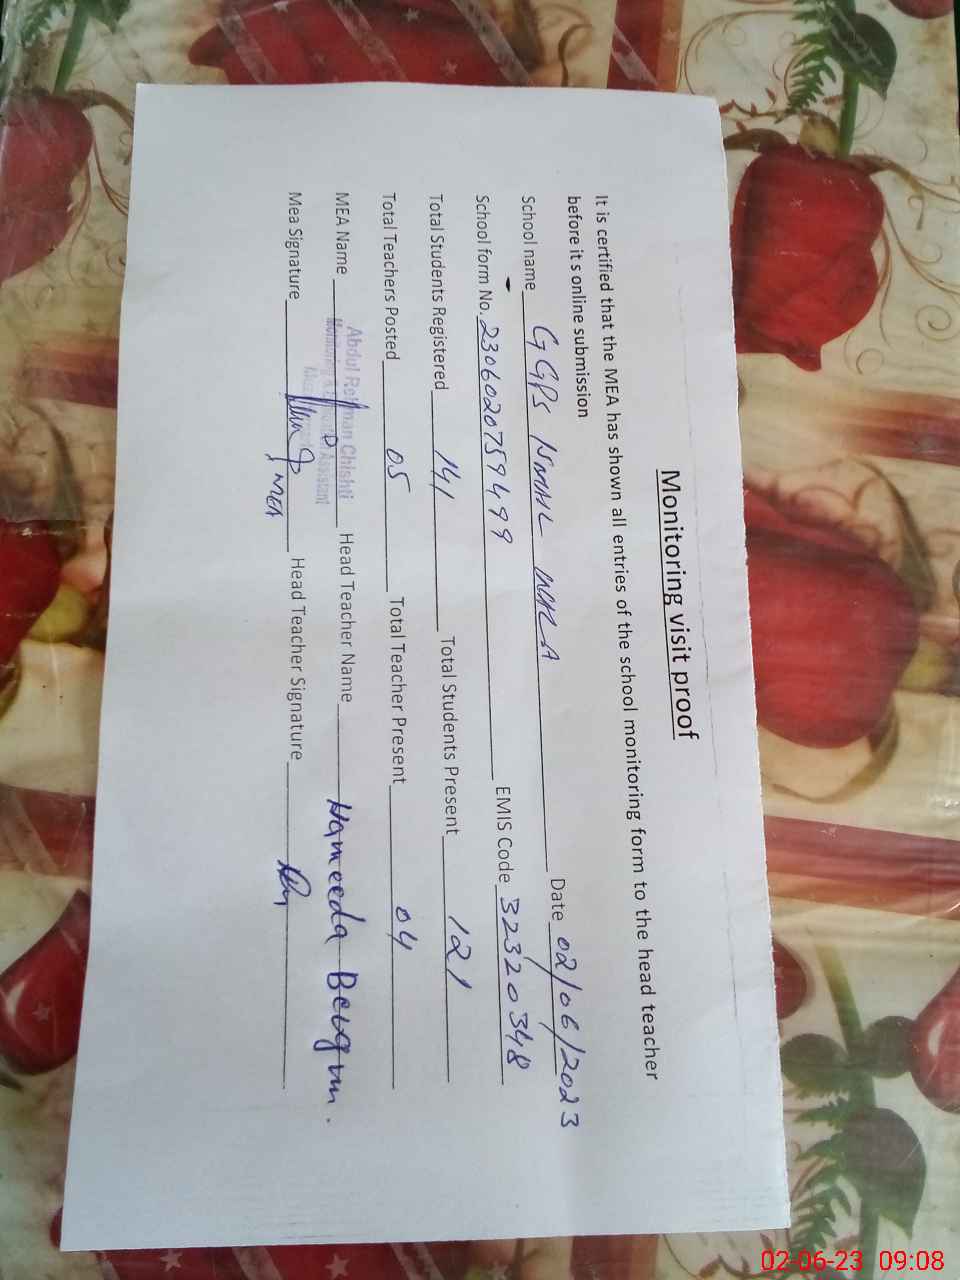 Monitoring visit proof
It is certified that the MEA has shown all entries of the school monitoring form to the head teacher
before it s online submission
School name GGPS WALA Date 02/06/2023
School form No. 2306020759499 EMIS Code 32320348
Total Students Registered 141 Total Students Present 121
Total Teachers Posted 05 Total Teacher Present 04
MEA Name Abdul Rehman Chishti Head Teacher Name Hameeda Beugum.
Monitoring & Assistant
Mea Signature MEA Head Teacher Signature
02-06-23 09:08